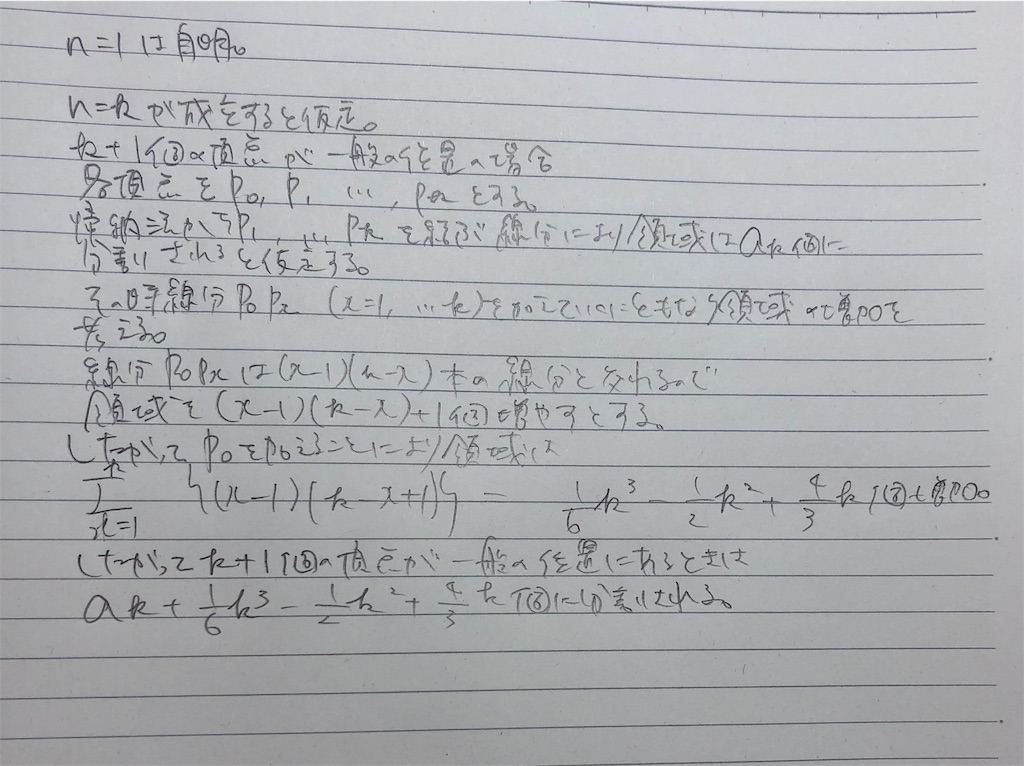 n=1は自明。
n=kが成立すると仮定。
k+1個の頂点が一般の位置の場合
各頂点をP0, P1 …, Pkとする。
帰納法からP1, …, Pkを結ぶ線分により領域はak個に
分割されると仮定する。
その時線分P0Px (x=1, …k)を加えていくにともなう領域の増加を
考える。
線分P0Pxは(x-1)(k-x)本の線分と交わるので
領域を(x-1)(k-x)+1個増やすとする。
したがってP0を加えることにより領域は
k∑x=1 {(x-1)(k-x+1)} = 1/6k³-1/2k²+4/3k 個増加。
したがってk+1個の頂点が一般の位置にあるときは
ak+1/6k³-1/2k²+4/3k個に分割される。